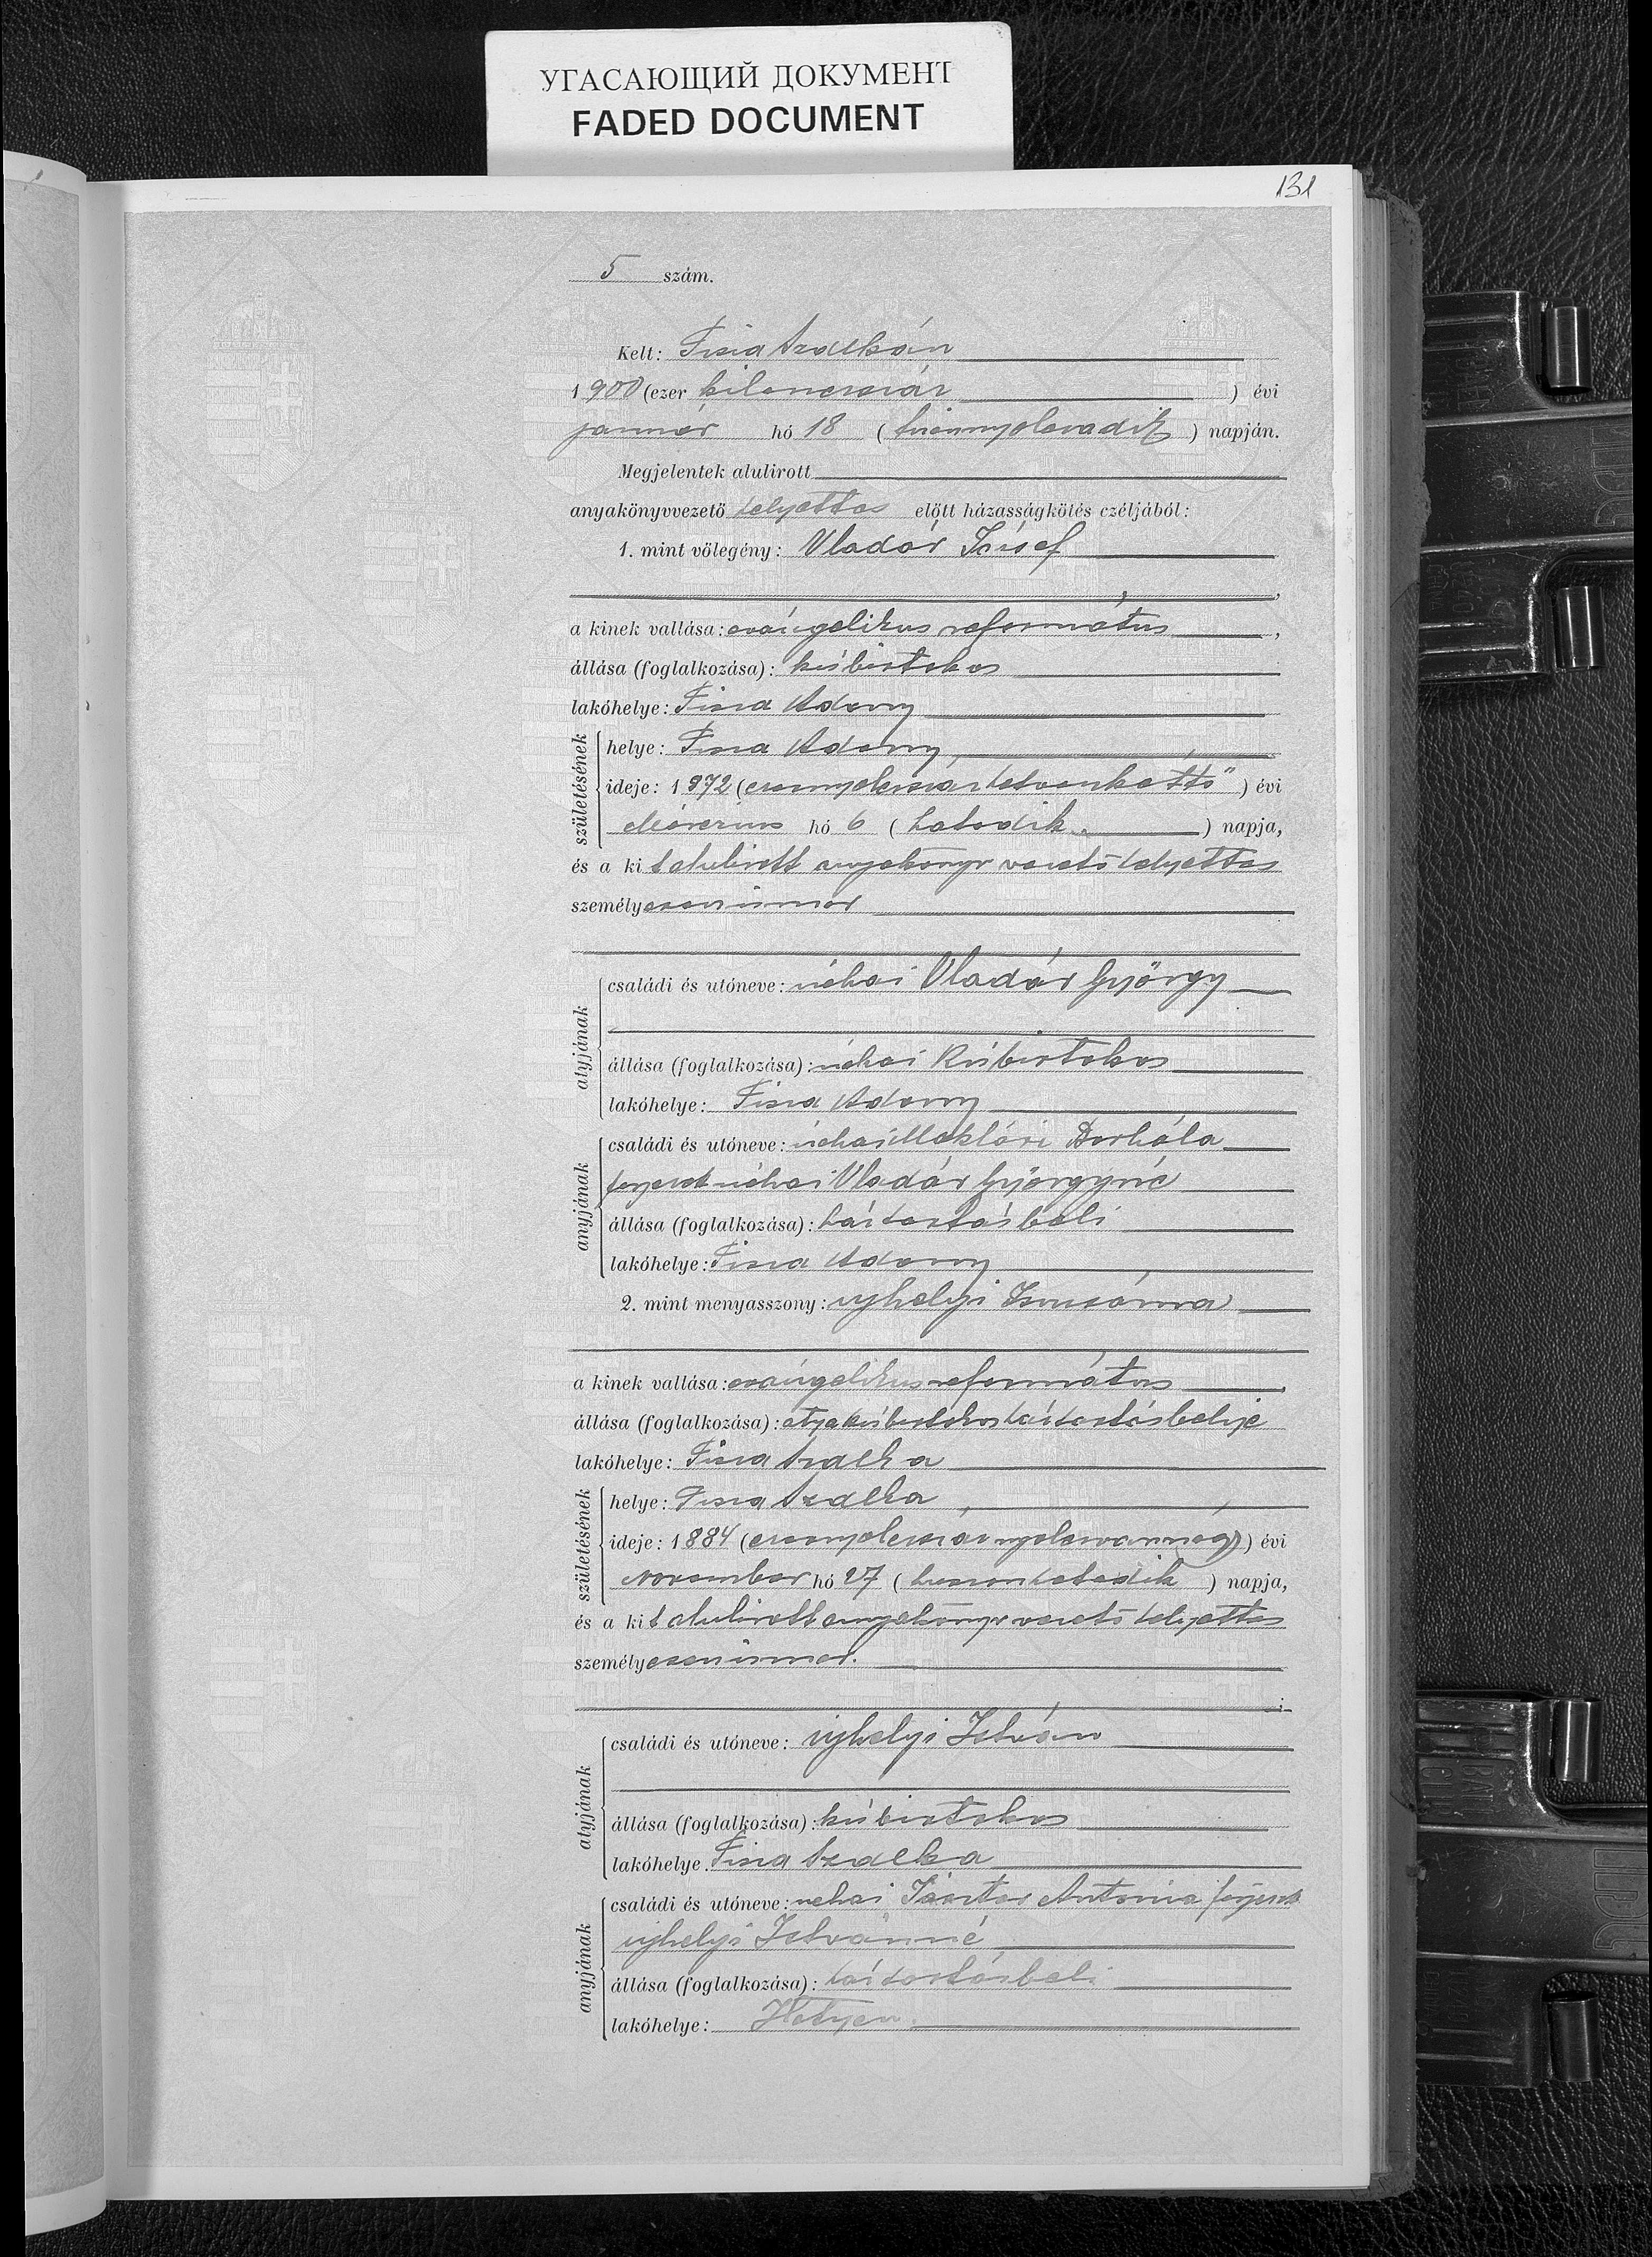 УГАСАЮЩИЙ ДОКУМЕНТ
FADED DOCUMENT
131
5 szám.
Kelt: Tisza Szalkán
1900 (ezer kilenczszáz ) évi
január hó 18 ( tizennyolczadik ) napján.
Megjelentek alulirott
anyakönyvvezető helyettes előtt házasságkötés czéljából:
1. mint vőlegény: Vladár József
a kinek vallása: evángelikus református,
állása (foglalkozása): kisbirtokos
lakóhelye: Tisza Adony
születésének
helye: Tisza Adony,
ideje: 1872 (ezernyolczszázhetvenkettő) évi
Márczius hó 6 ( hatodik ) napja,
és a kit alulirott anyakönyv vezető helyettes
személyesen ismer
atyjának
családi és utóneve: néhai Vladár György
állása (foglalkozása): néhai Kisbirtokos
lakóhelye: Tisza Adony
anyjának
családi és utóneve: néhai Maklári Borbála
férjezett néhai Vladár Györgyné
állása (foglalkozása): háztartásbeli
lakóhelye: Tisza Adony
2. mint menyasszony: ujhelyi Zsuzsánna
a kinek vallása: evángelikus református,
állása (foglalkozása): atya kisbirtokos háztartásbelije
lakóhelye: Tisza Szalka
születésének
helye: Tisza Szalka,
ideje: 1884 (ezernyolczszáznyolczvannégy) évi
November hó 27 ( huszonhetedik ) napja,
és a kit alulirott anyakönyv vezető helyettes
személyesen ismer.
;
atyjának
családi és utóneve: ujhelyi István
állása (foglalkozása): kisbirtokos
lakóhelye. Tisza Szalka
anyjának
családi és utóneve: néhai Antonia férjezett
ujhelyi Istvánné
állása (foglalkozása): háztartásbeli
lakóhelye: Hetyen